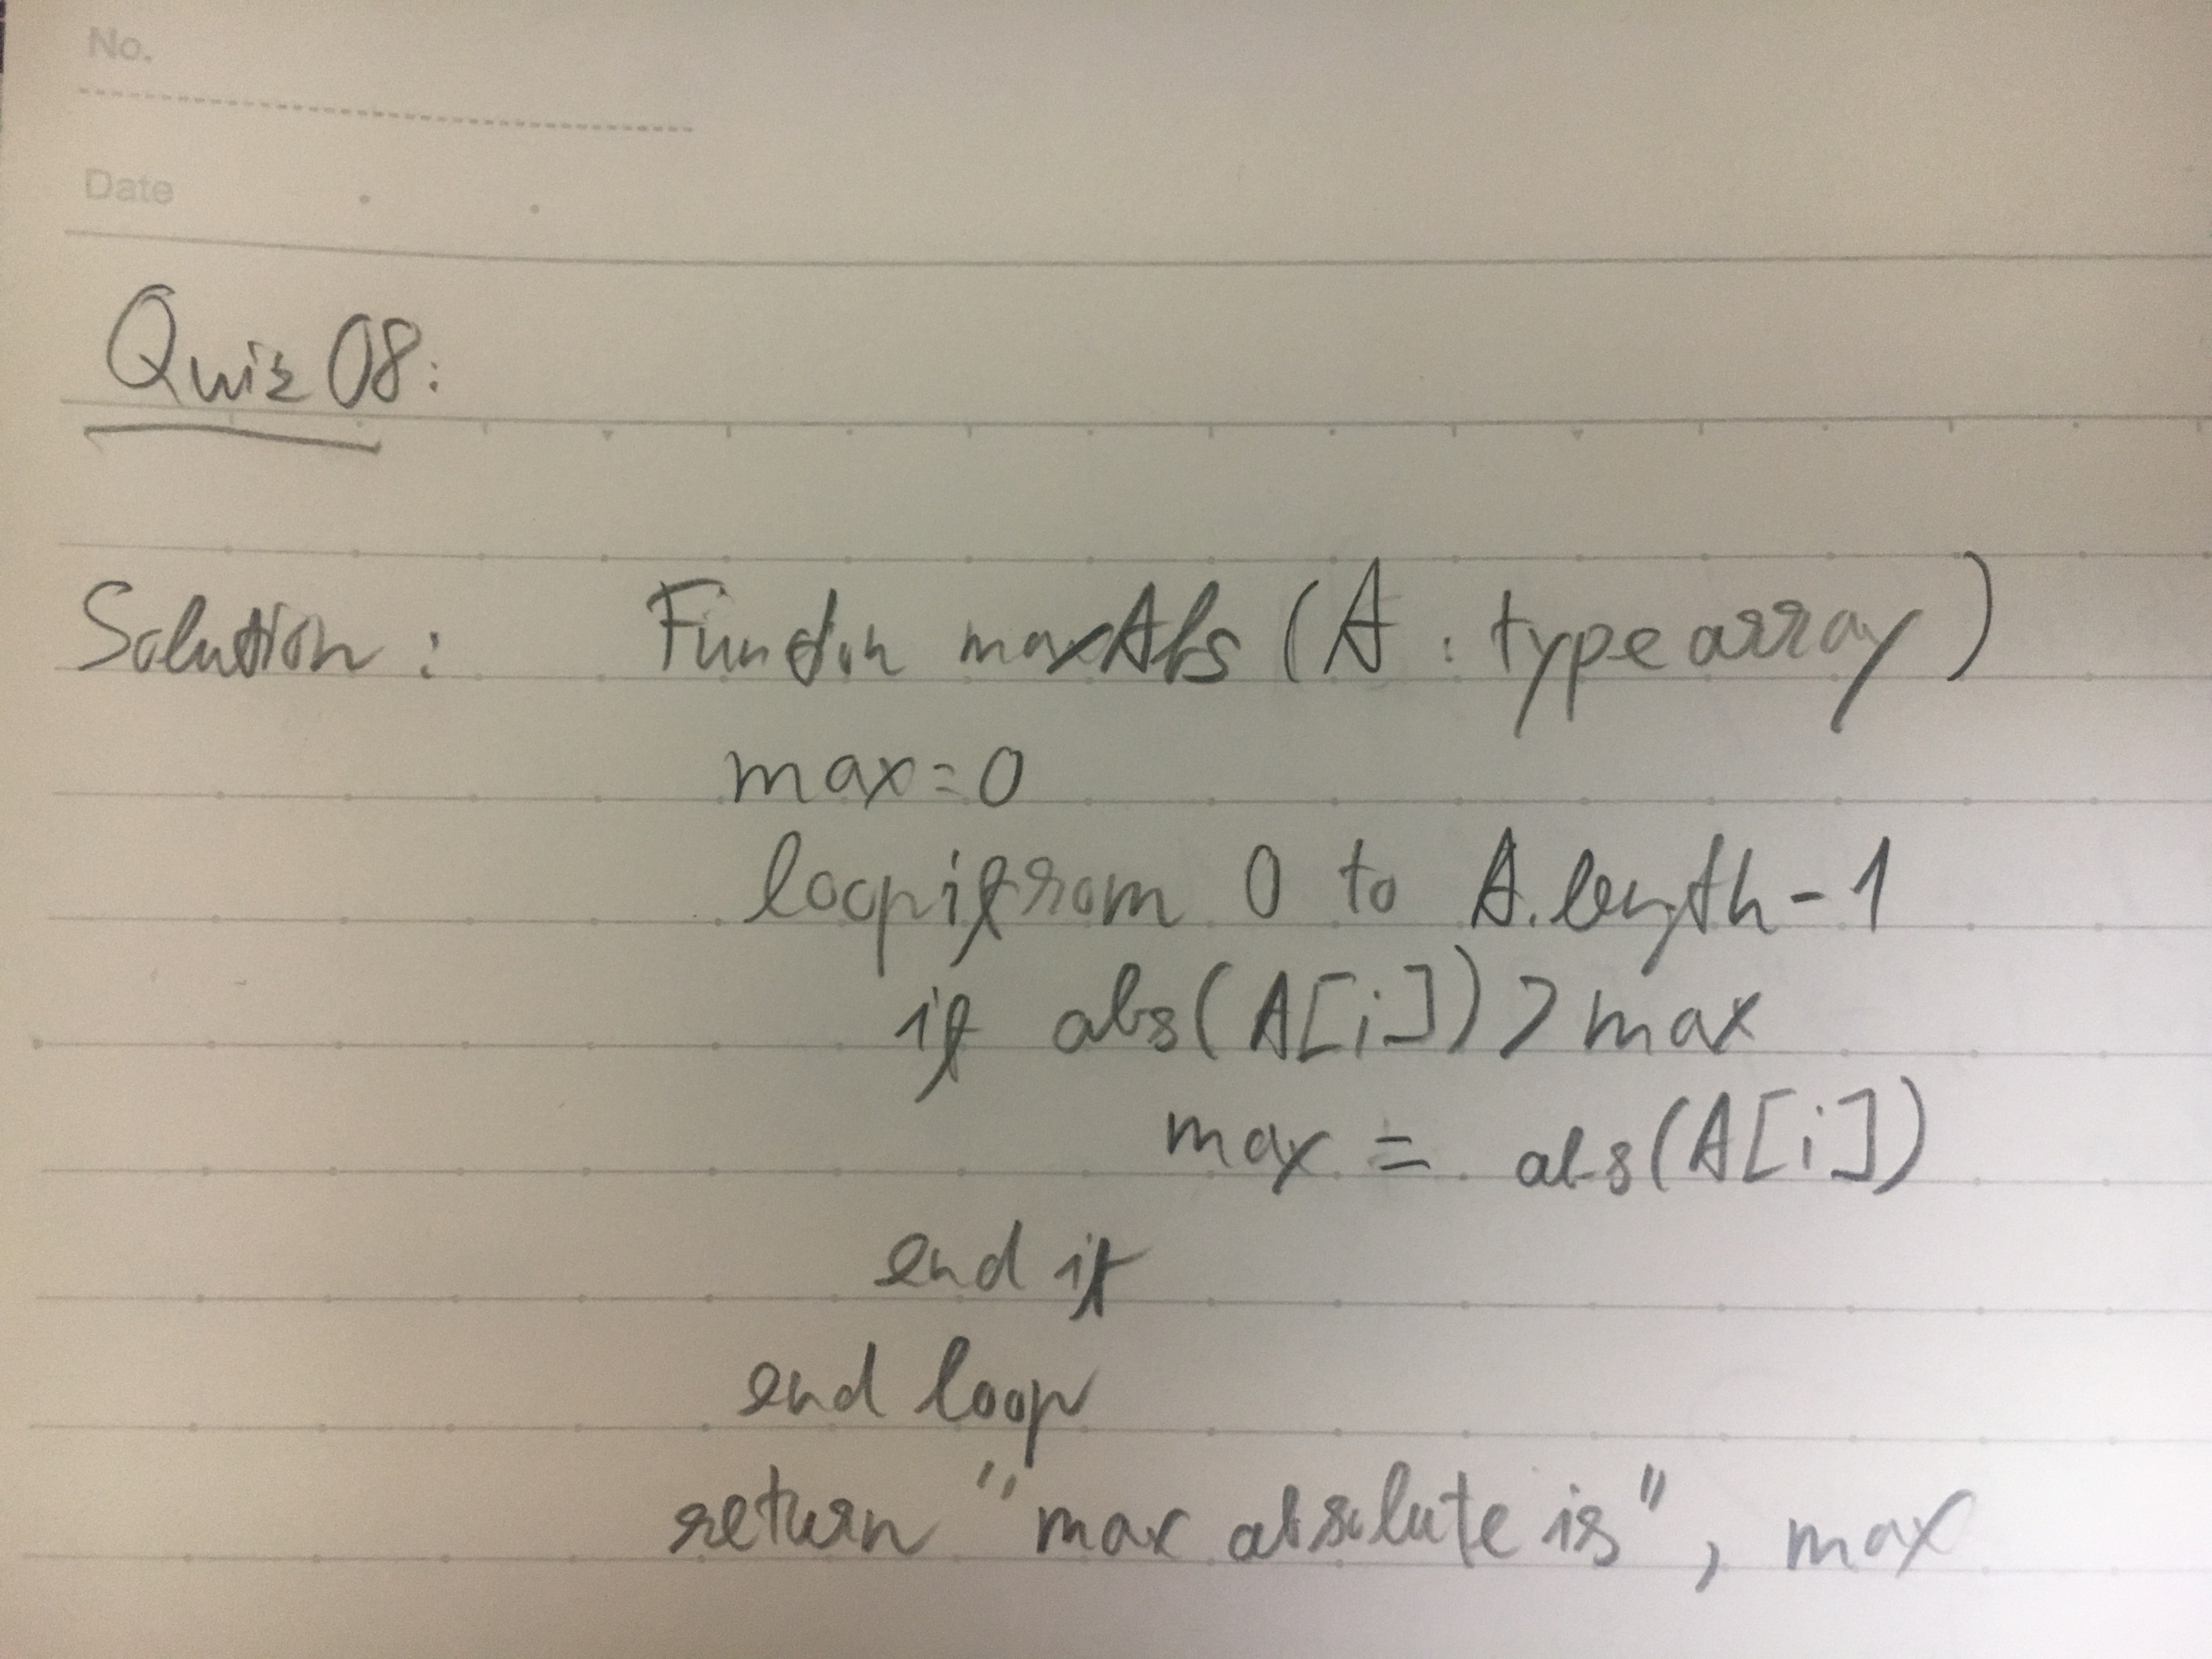 No.
Date
Quiz 08:
Solution : Function maxAbs (A : type array)
max=0
loop i from 0 to A.length-1
if abs(A[i]) > max
max = abs(A[i])
end if
end loop
return "max absolute is", max